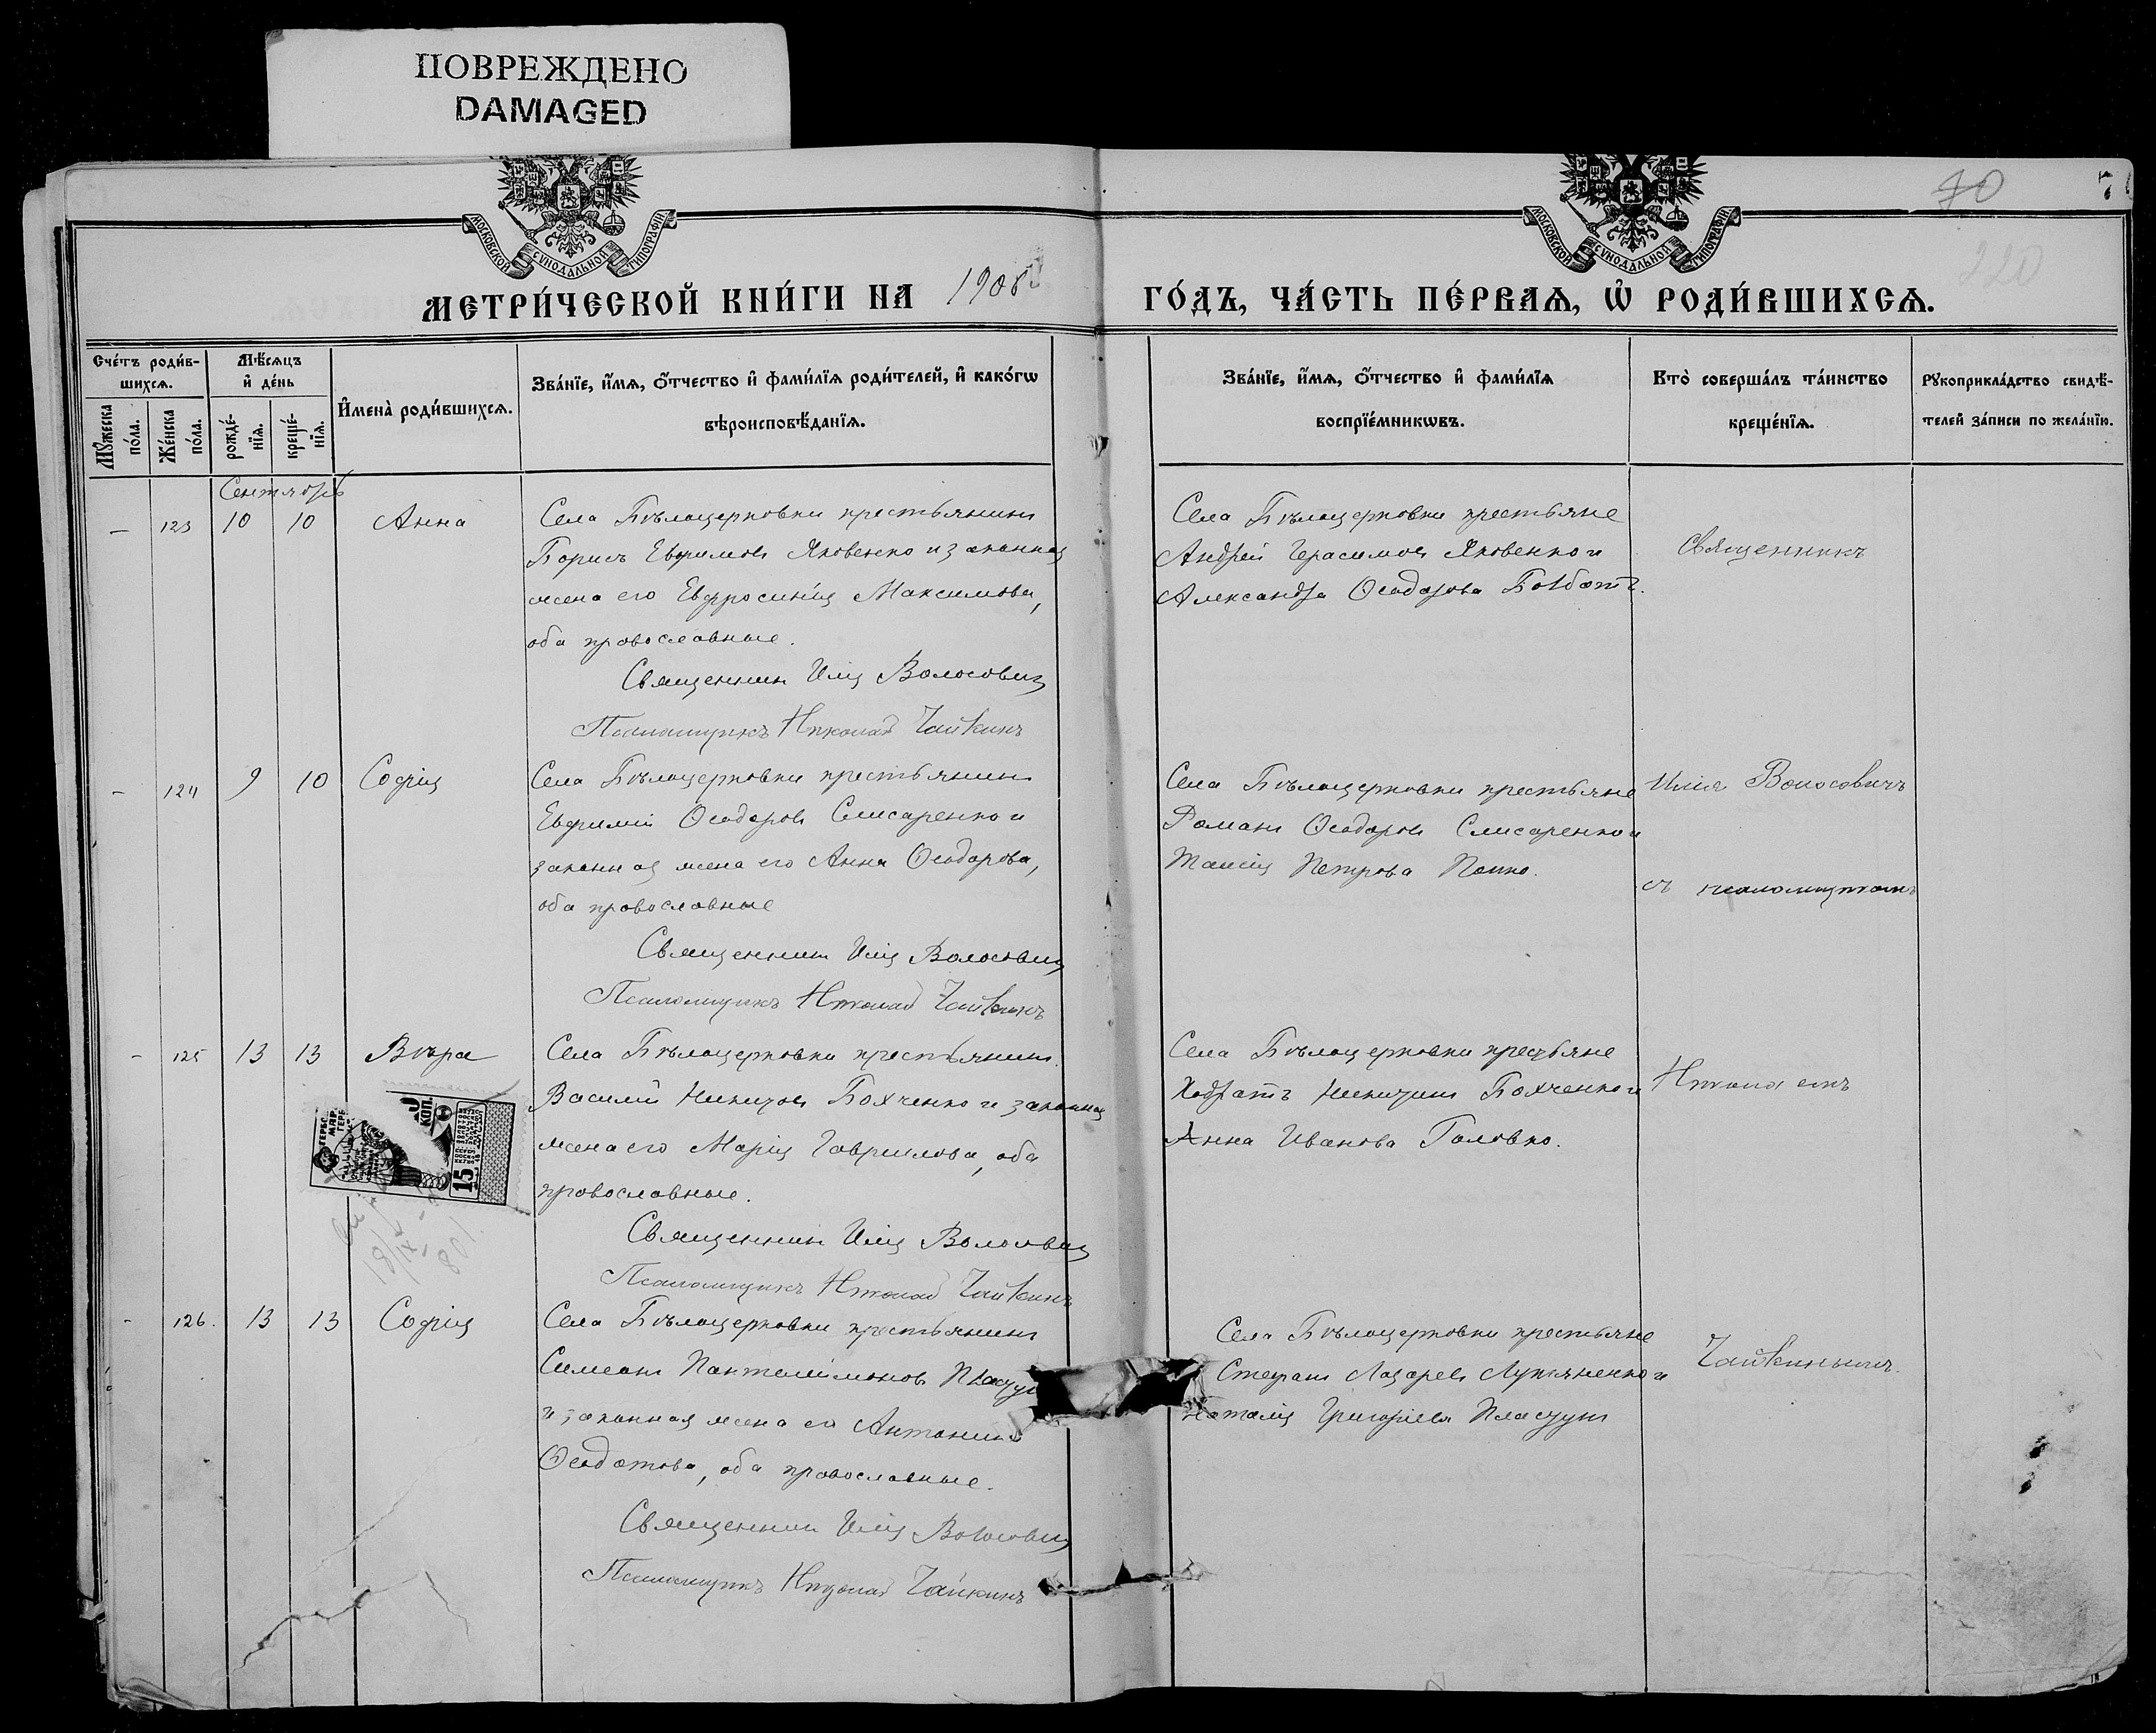 ПОВРЕЖДЕНО
DAMAGED
70
220
МОСКОВСКОЙ СѴНОДАЛЬНОЙ ТИПОГРАФІИ
МОСКОВСКОЙ СѴНОДАЛЬНОЙ ТИПОГРАФІИ
МЕТРИ́ЧЕСКОЙ КНИ́ГИ НА 1908
ГО́ДЪ, ЧА́СТЬ ПЕ́РВАѦ, Ѡ҆ РОДИ́ВШИХСѦ.
Сче́тъ роди́в-
шихсѧ.
Мꙋ́жеска по́ла.
Же́нска по́ла.
Мѣ́сѧцъ
и҆ де́нь
рожде́-
нїѧ.
креще́-
нїѧ.
И҆мена̀ роди́вшихсѧ.
Зва́нїе, и҆́мѧ, ѻ҆́тчество и҆ фами́лїѧ роди́телей, и҆ како́гѡ
вѣроисповѣ́данїѧ.
Зва́нїе, и҆́мѧ, ѻ҆́тчество и҆ фами́лїѧ
воспрїе́мникѡвъ.
Кто̀ соверша́лъ та́инство
креще́нїѧ.
Рꙋкоприкла́дство свидѣ́-
телей за́писи по жела́нїю.
Сентябрь
— 123 10 10 Анна
Села Бѣлоцерковки крестьянинъ
Борисъ Ефимовъ Яковенко и законная
жена его Евфросинія Максимова,
оба православные.
Священникъ Илія Волосовичъ
Псаломщикъ Николай Чайкинъ
Села Бѣлоцерковки крестьяне
Андрей Герасимовъ Яковенко и
Александра Ѳеодорова Болбатъ.
Священникъ
- 124 9 10 Софія
Села Бѣлоцерковки крестьянинъ
Евфимій Ѳеодоровъ Слисаренко и
законная жена его Анна Ѳеодорова,
оба православные
Священникъ Илія Волосовичъ
Псаломщикъ Николай Чайкинъ
Села Бѣлоцерковки крестьяне
Романъ Ѳеодоровъ Слисаренко и
Таисія Петрова
Илія Волосовичъ
съ псаломщикомъ
- 125 13 13 Вѣра
Села Бѣлоцерковки крестьянинъ
Василій Никитовъ Бохченко и законная
жена его Марія Гавриилова, оба
православные.
Священникъ Илія Волосовичъ
Псаломщикъ Николай Чайкинъ
Села Бѣлоцерковки крестьяне
Кодратъ Никитинъ Бохченко и
Анна Иванова Головко.
Николаемъ
КОП.
15
- 126. 13 13 Софія
Села Бѣлоцерковки крестьянинъ
Симеонъ Пантелеимоновъ
и законная жена его Антонина
Ѳеодотова, оба православные.
Священникъ Илія Волосовичъ
Псаломщикъ Николай Чайкинъ
Села Бѣлоцерковки крестьяне
Стефанъ Лазаревъ Лукьяненко и
Наталія Григоріева Пласкунъ
Чайкинымъ.